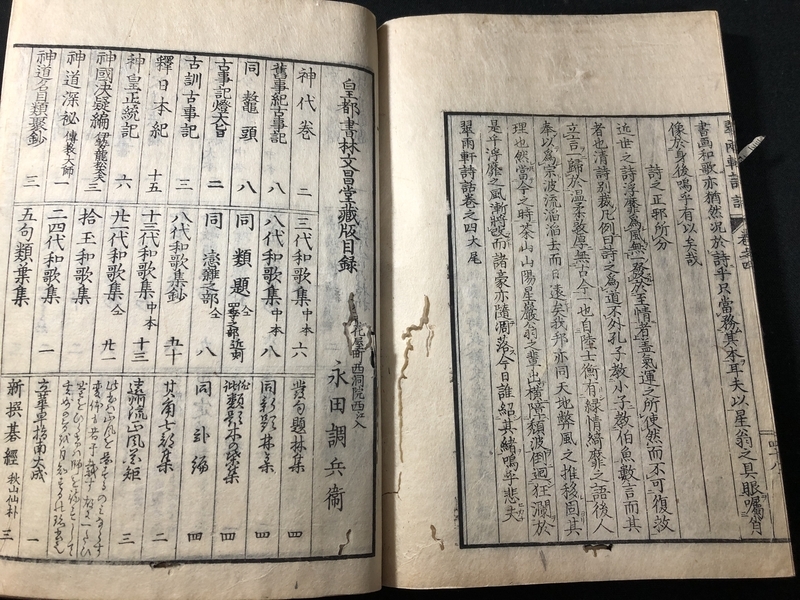 書画和歌亦猶然况於詩乎只當務其本耳夫以星翁之具眼嘱肖
像於身後嗚乎有以矣哉
詩之正邪所分
近世之詩浮靡為風無發於至情者盖氣運之所使然而不可復救
者也清詩別裁凡例曰詩之為道不外孔子教小子教伯魚數言而其
立言一歸於温柔敦厚無古今一也自陸士衡有縁情綺靡之語後人
奉以為宗波流滔滔去而日遠矣我邦亦同天地弊風之推移固其
理也然當今之時茶山山陽星巖翁之輩出横障頽波倒廻狂瀾於
是乎浮靡之風漸将説而諸豪亦隨凋落今日誰紹其緒嗚乎悲夫
翠雨軒詩話卷之四大尾
皇都書林文昌堂藏版目録
花屋町西洞院西江入
永田調兵衛
神代卷 二
舊事紀古事記 八
同 鼇頭 八
古事記燈大旨 二
古訓古事記 三
釋日本紀 十五
神皇正統記 六
神國决疑編 伊勢龍松夫 三
神道深祕 傳教大師 一
神道名目類聚鈔 三
三代和歌集 中本 六
八代和歌集 中本 八
同 類題 全 八
同 恋雜之部 全 八
八代和歌集鈔 五十
十三代和歌集 中本 十三
廿一代和歌集 全 廿一
拾玉和歌集 七
二四代和歌集 一
五句類葉集 五
發句題林集 四
四
四
同 補編 四
其角七部集 二
遠州流 三
立華草指南大成 一
新撰碁經 秋山仙朴 三